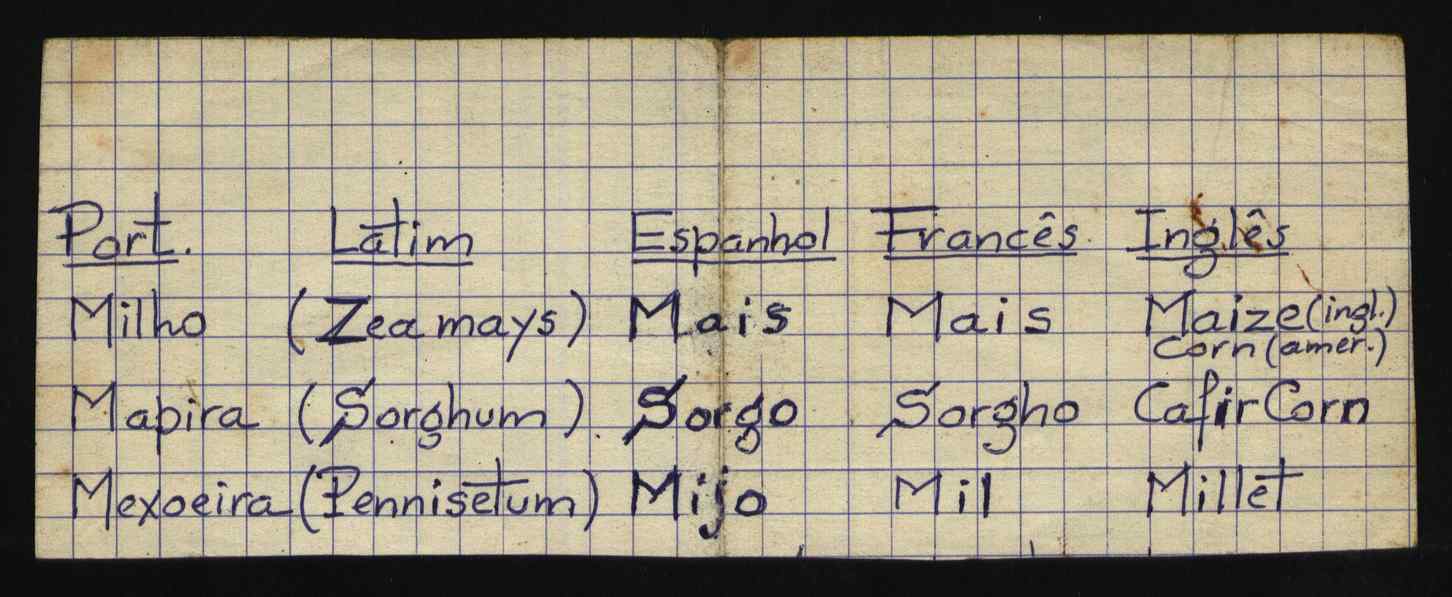 Port. Latim Espanhol Francês Inglês
Milho (Zea mays) Mais Mais Maize (ingl.)
Corn (amer.)
Mapira (Sorghum) Sorgo Sorgho Cafir Corn
Mexoeira (Pennisetum) Mijo Mil Millet